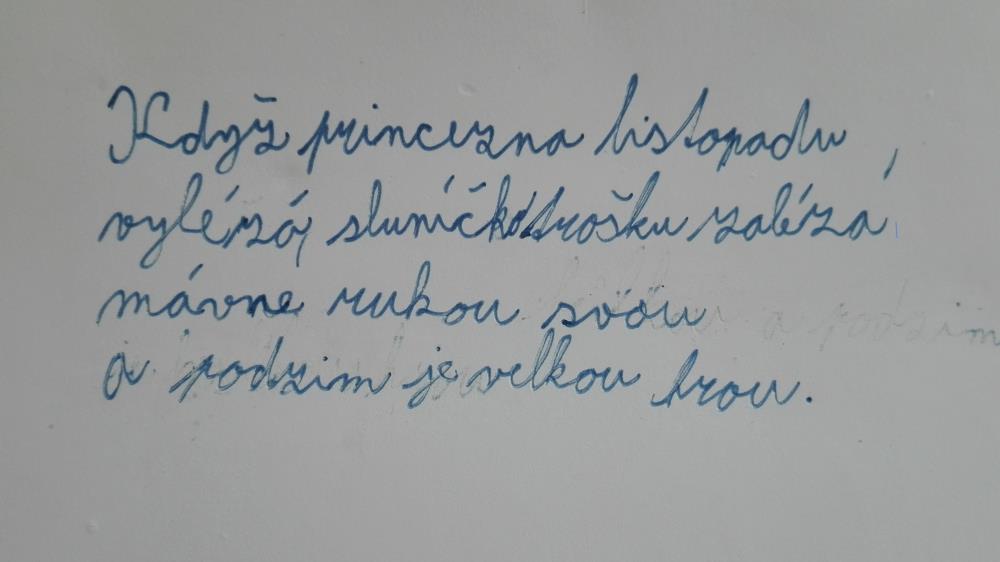 Když princezna listopadu,
vylézá, sluníčko trošku zalézá,
mávne rukou svou
a podzim je velkou hrou.
a podzim